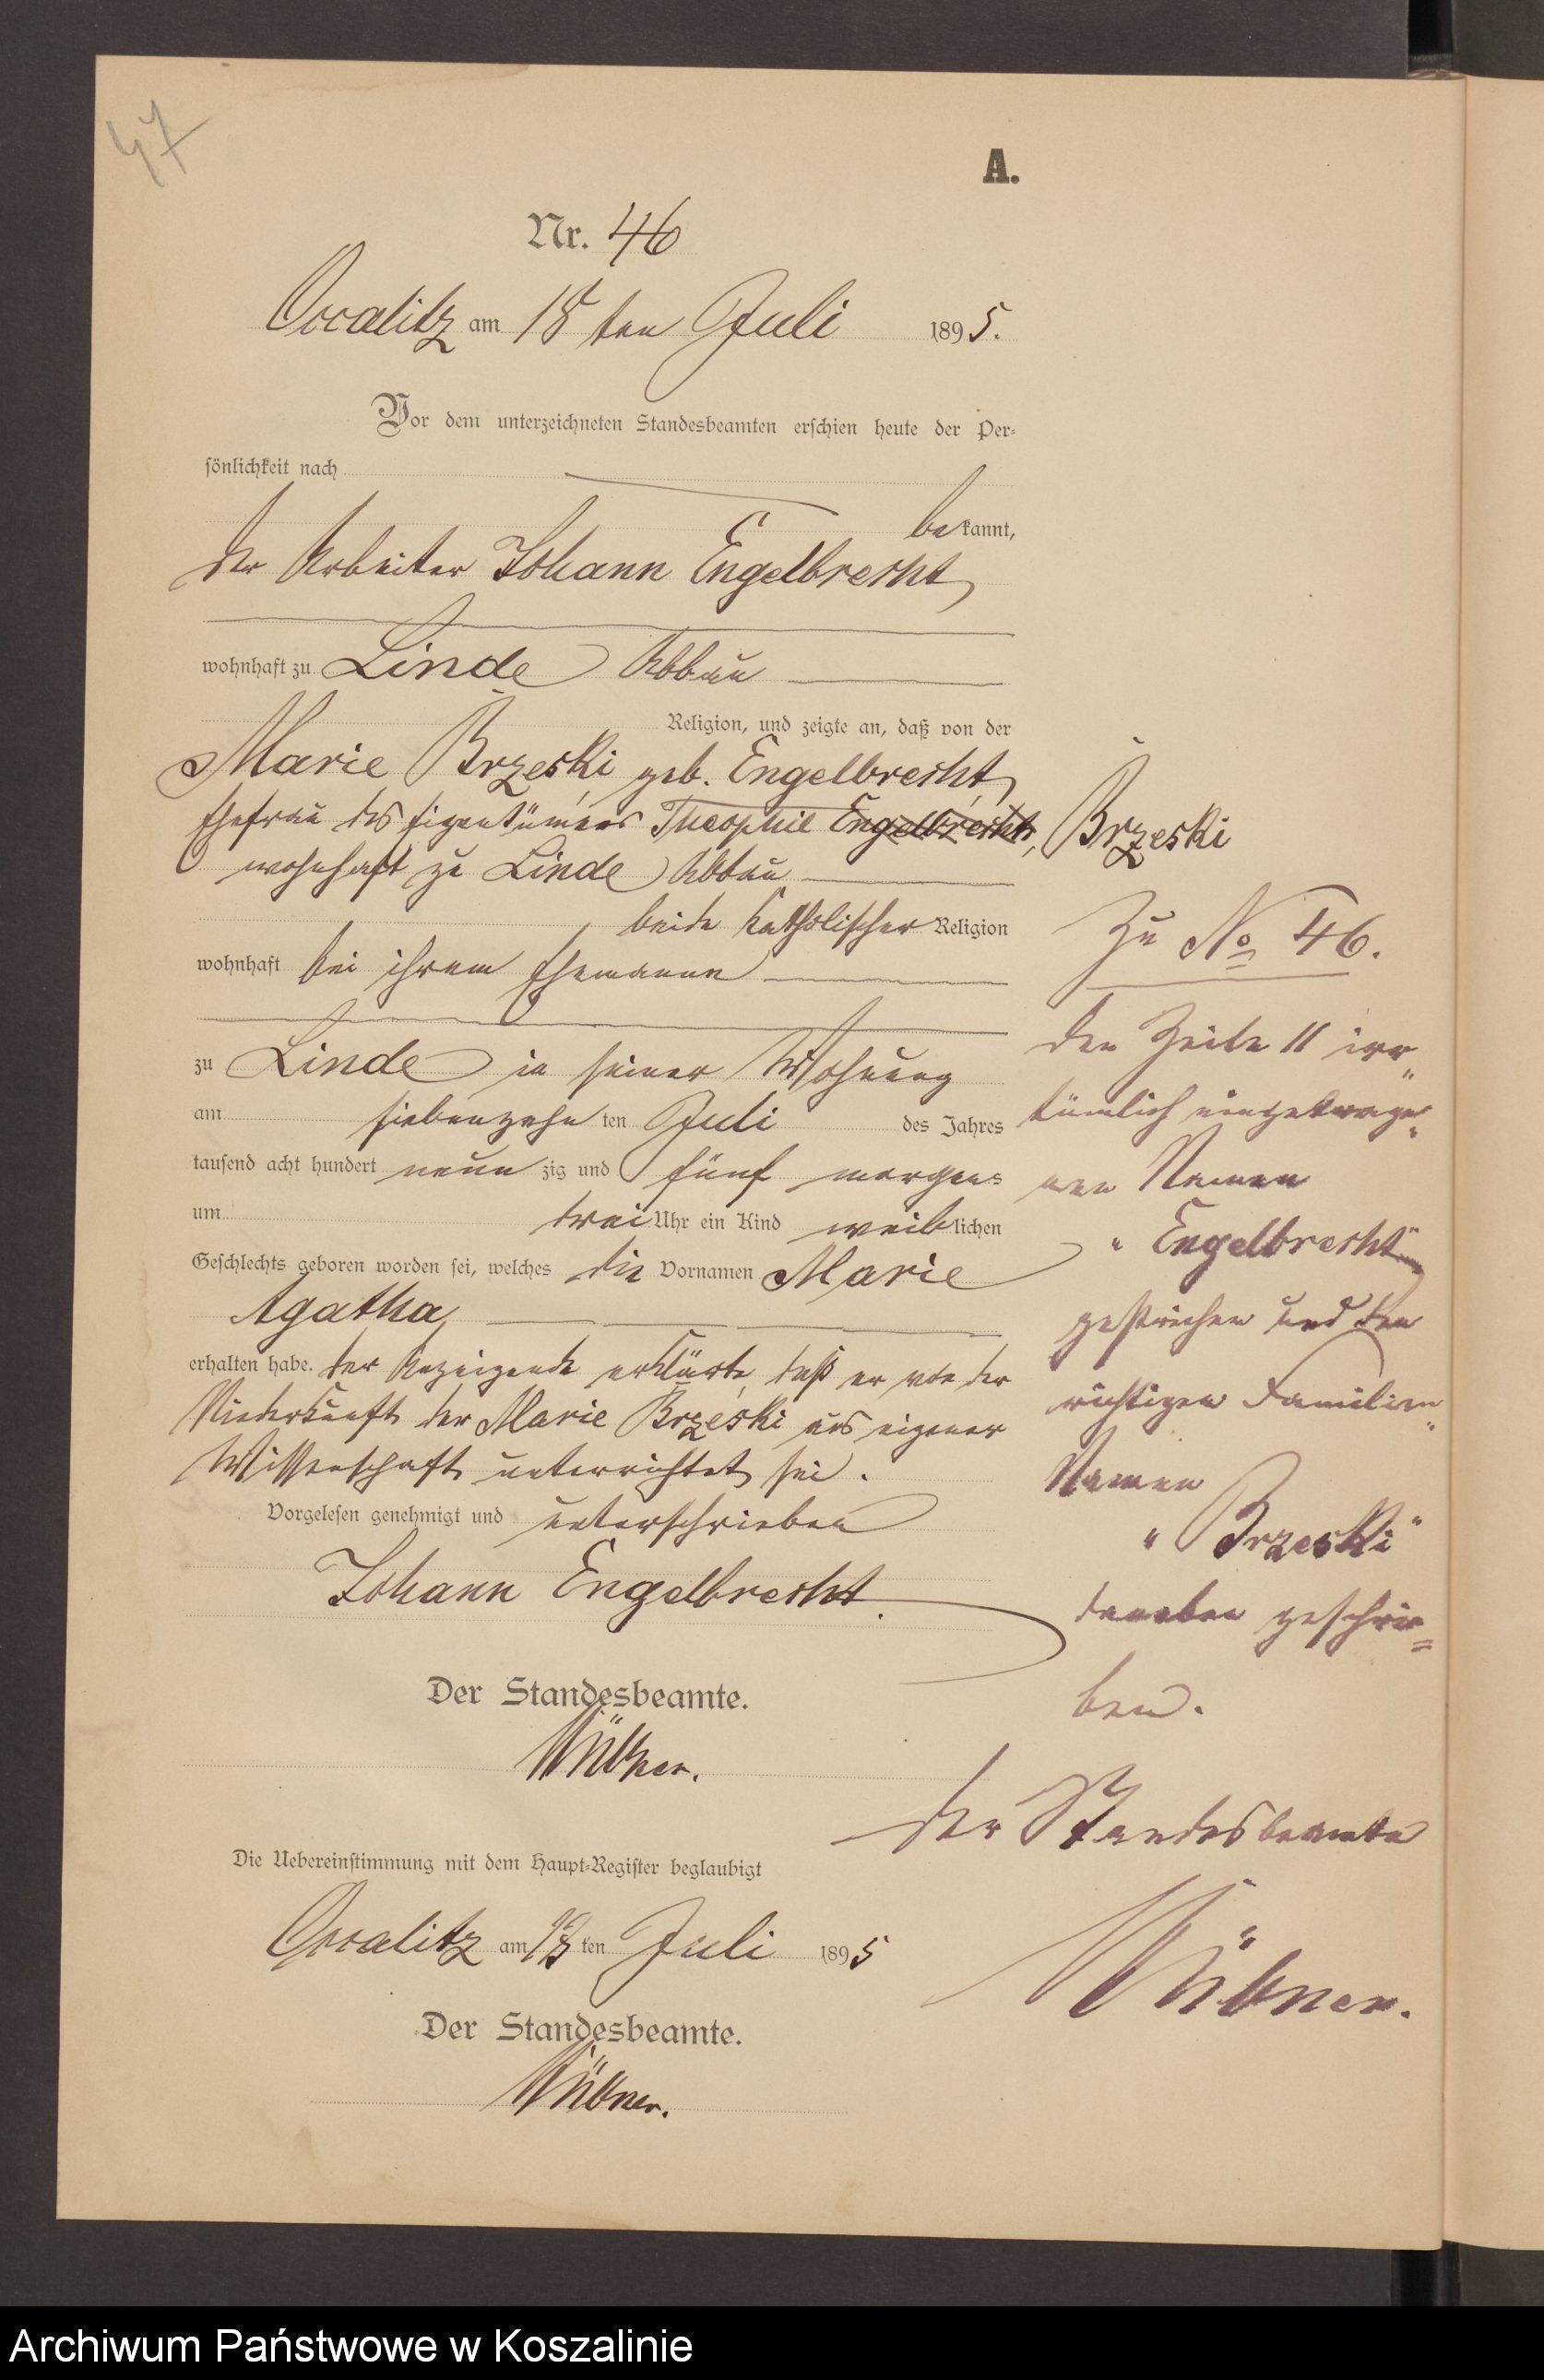 47
A.
Nr. 46
Occalitz am 18 ten Juli 1895.
Vor dem unterzeichneten Standesbeamten erschien heute der Per-
sönlichkeit nach
bekannt,
der Arbeiter Johann Engelbrecht,
wohnhaft zu Linde Abbau
Religion, und zeigte an, daß von der
Marie Brzeski geb. Engelbrecht,
Ehefrau des Eigentümers Theophil Engelbrecht, Brzeski
wohnhaft zu Linde Abbau
beide katholischer Religion
wohnhaft bei ihrem Ehemanne
zu Linde in seiner Wohnung
am siebenzehnten Juli des Jahres
tausend acht hundert neunzig und fünf morgens
um drei Uhr ein Kind weiblichen
Geschlechts geboren worden sei, welches die Vornamen Marie
Agatha,
erhalten habe. Der Anzeigende erklärte, daß er von der
Niederkunft der Marie Brzeski aus eigener
Wissenschaft unterrichtet sei.
Vorgelesen genehmigt und unterschrieben
Johann Engelbrecht.
Der Standesbeamte.
Die Uebereinstimmung mit dem Haupt-Register beglaubigt
Occalitz am 18 ten Juli 1895
Der Standesbeamte.
Zu No 46.
Den Zeile 11 irr„
tümlich eingetrage„
nen Namen
„Engelbrecht"
gestrichen und den
richtigen Familien„
Namen
"Brzeski"
daneben geschrie=
ben.
Der Standesbeamte
Archiwum Państwowe w Koszalinie